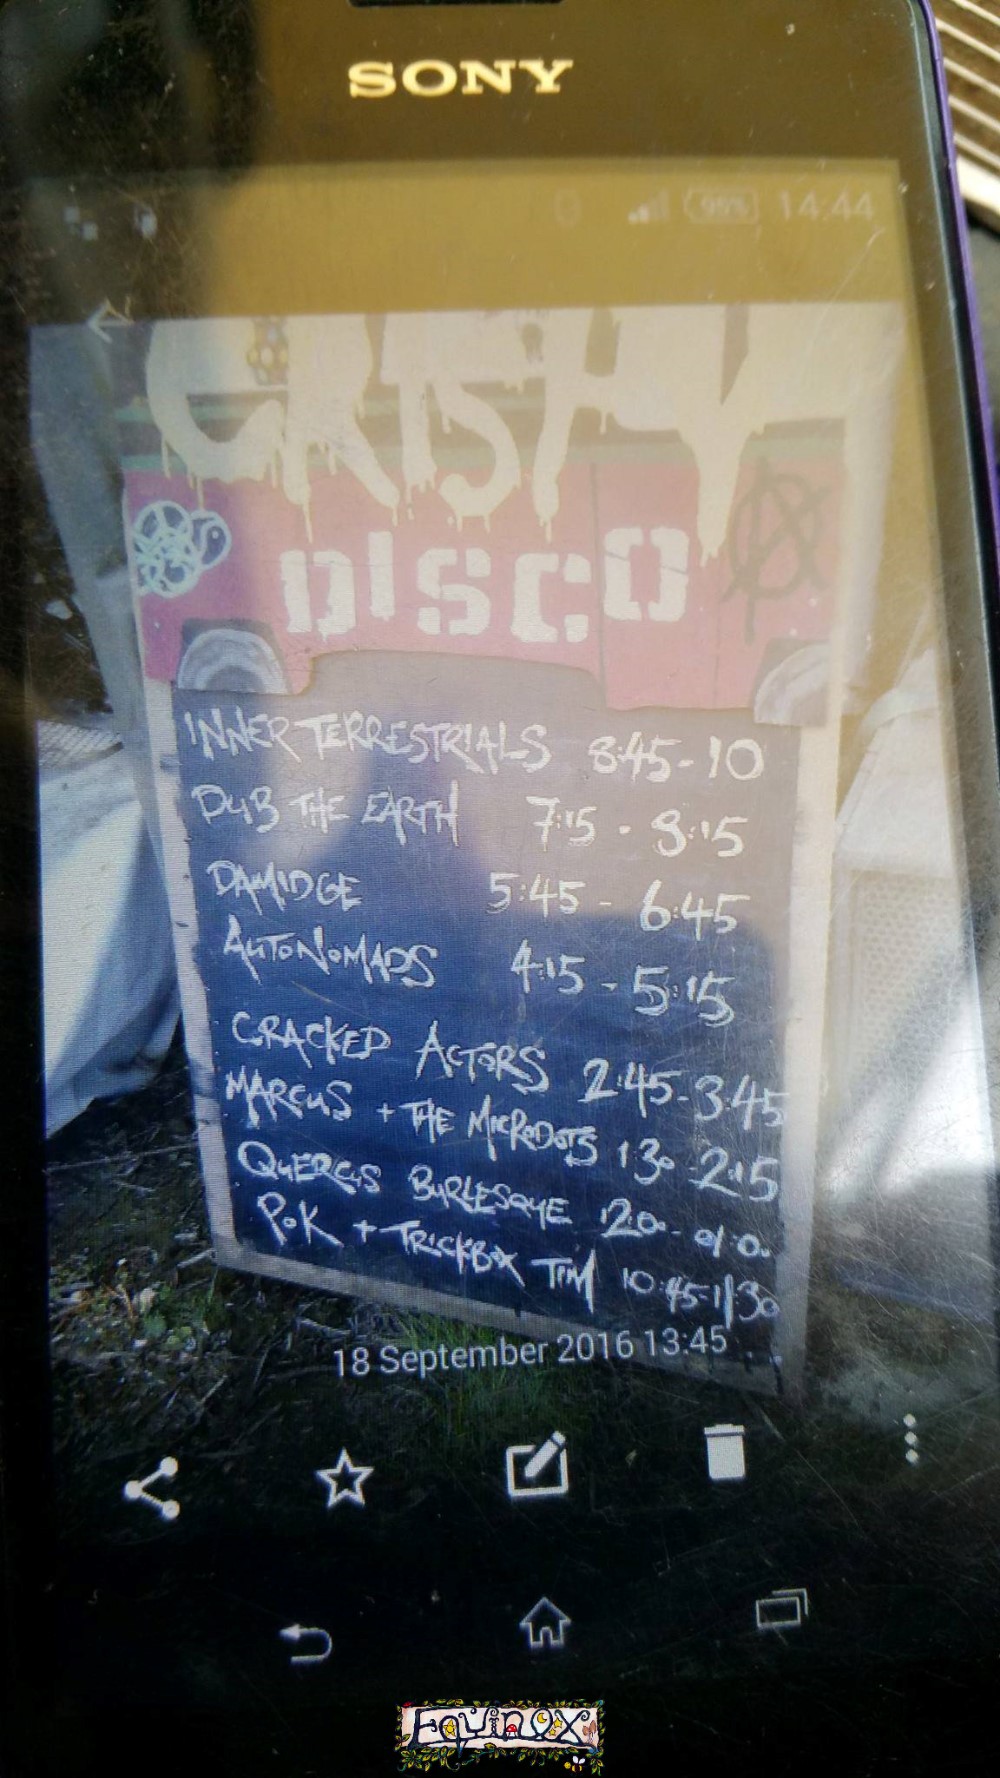 SONY
99% 14:44
CRISPY
DISCO
INNER TERRESTRIALS 8:45-10
DUB THE EARTH 7:15 - 8:15
DAMIDGE 5:45 - 6:45
AUTONOMADS 4:15 - 5:15
CRACKED ACTORS 2:45-3:45
MARCUS + THE MICRODOTS 1:30-2:15
QUERCUS BURLESQUE 12.0. - 01.0.
P.O.K + TRICKBOX TIM 10:45-11/30
18 September 2016 13:45
EQUINOX